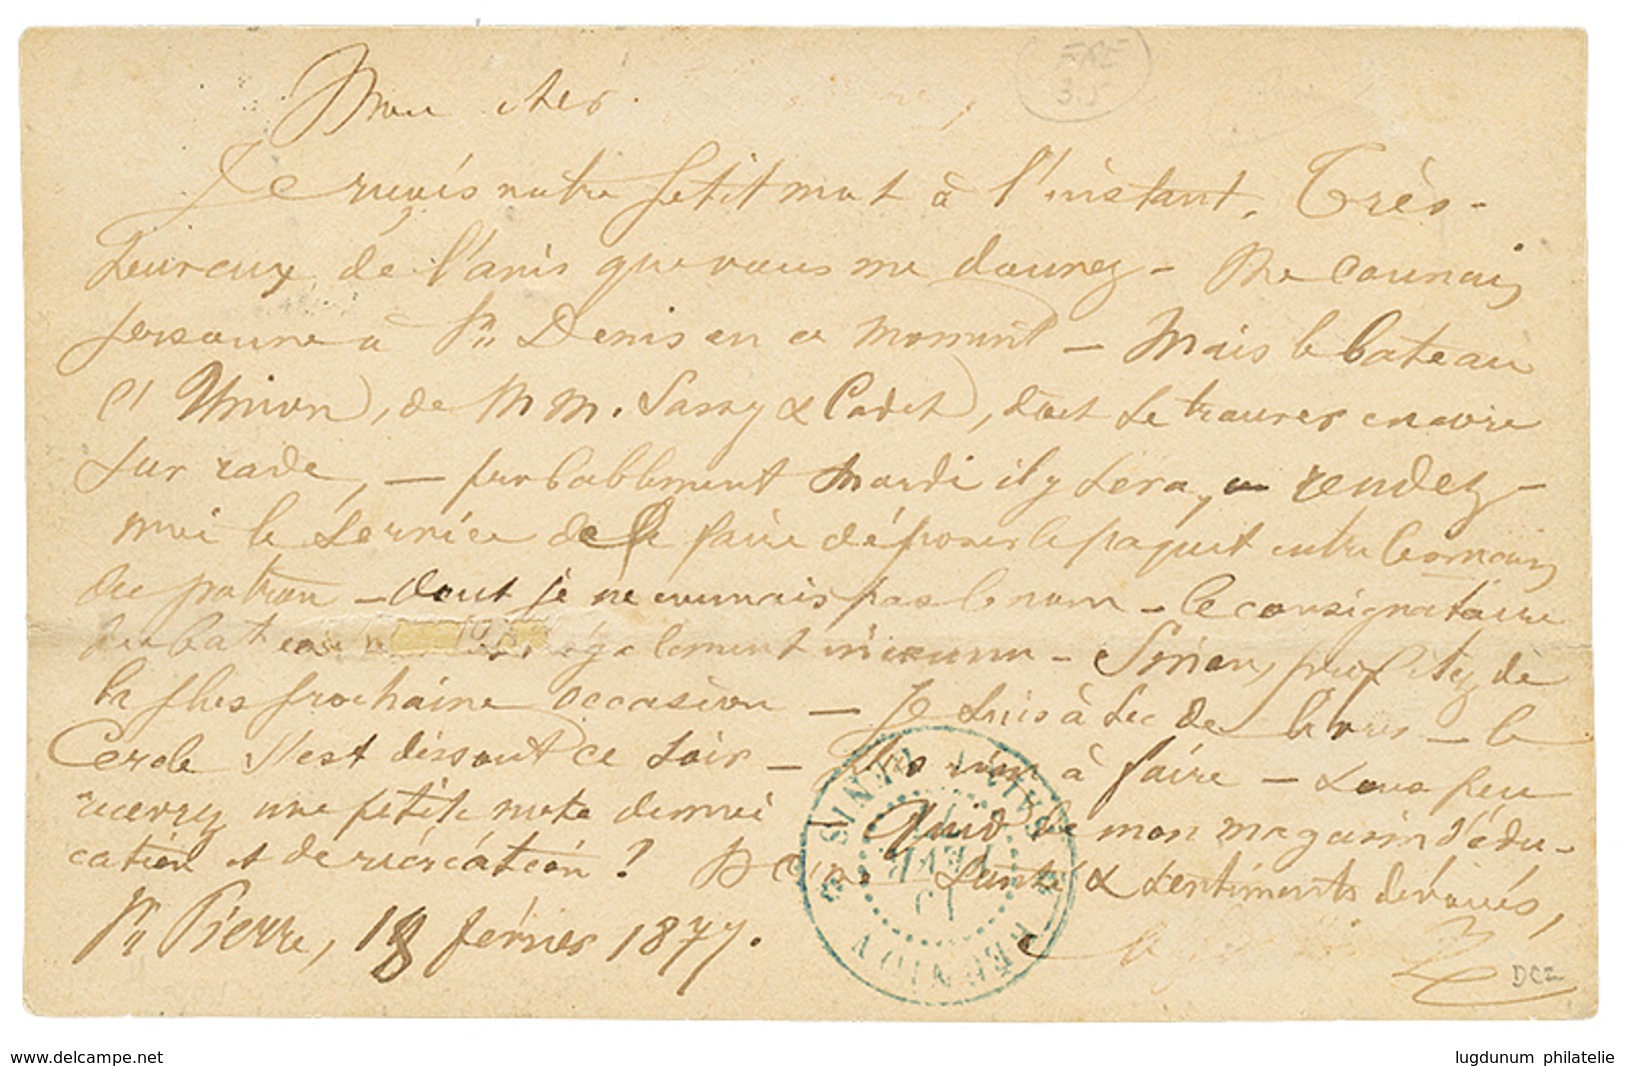 Mon cher.
FRE
3.5
Je reçois votre petit mot à l'instant. Très-
heureux de l'avis que vous me donnez - Ne connais
personne à St Denis en ce moment - Mais le bateau
l'Union, de MM. Sassy & Cadet, doit se trouver encore
sur rade, - probablement mardi il y sera, rendez-
moi le service de le faire déposer le paquet entre les mains
du patron - dont je ne connais pas le nom - le consignataire
du bateau également inconnu - Sinon, profitez de
la plus prochaine occasion - Je suis à sec de livres - le
Cercle s'est dissout ce soir - Pas rien à faire - Sous peu
recevrez une petite note de moi - Quid de mon magasin d'édu-
cation et de récréation ? Santé & sentiments dévoués,
St Pierre, 18 février 1877.
SAINT DENIS
FEVR
REUNION
DCZ
www.delcampe.net
lugdunum philatelie